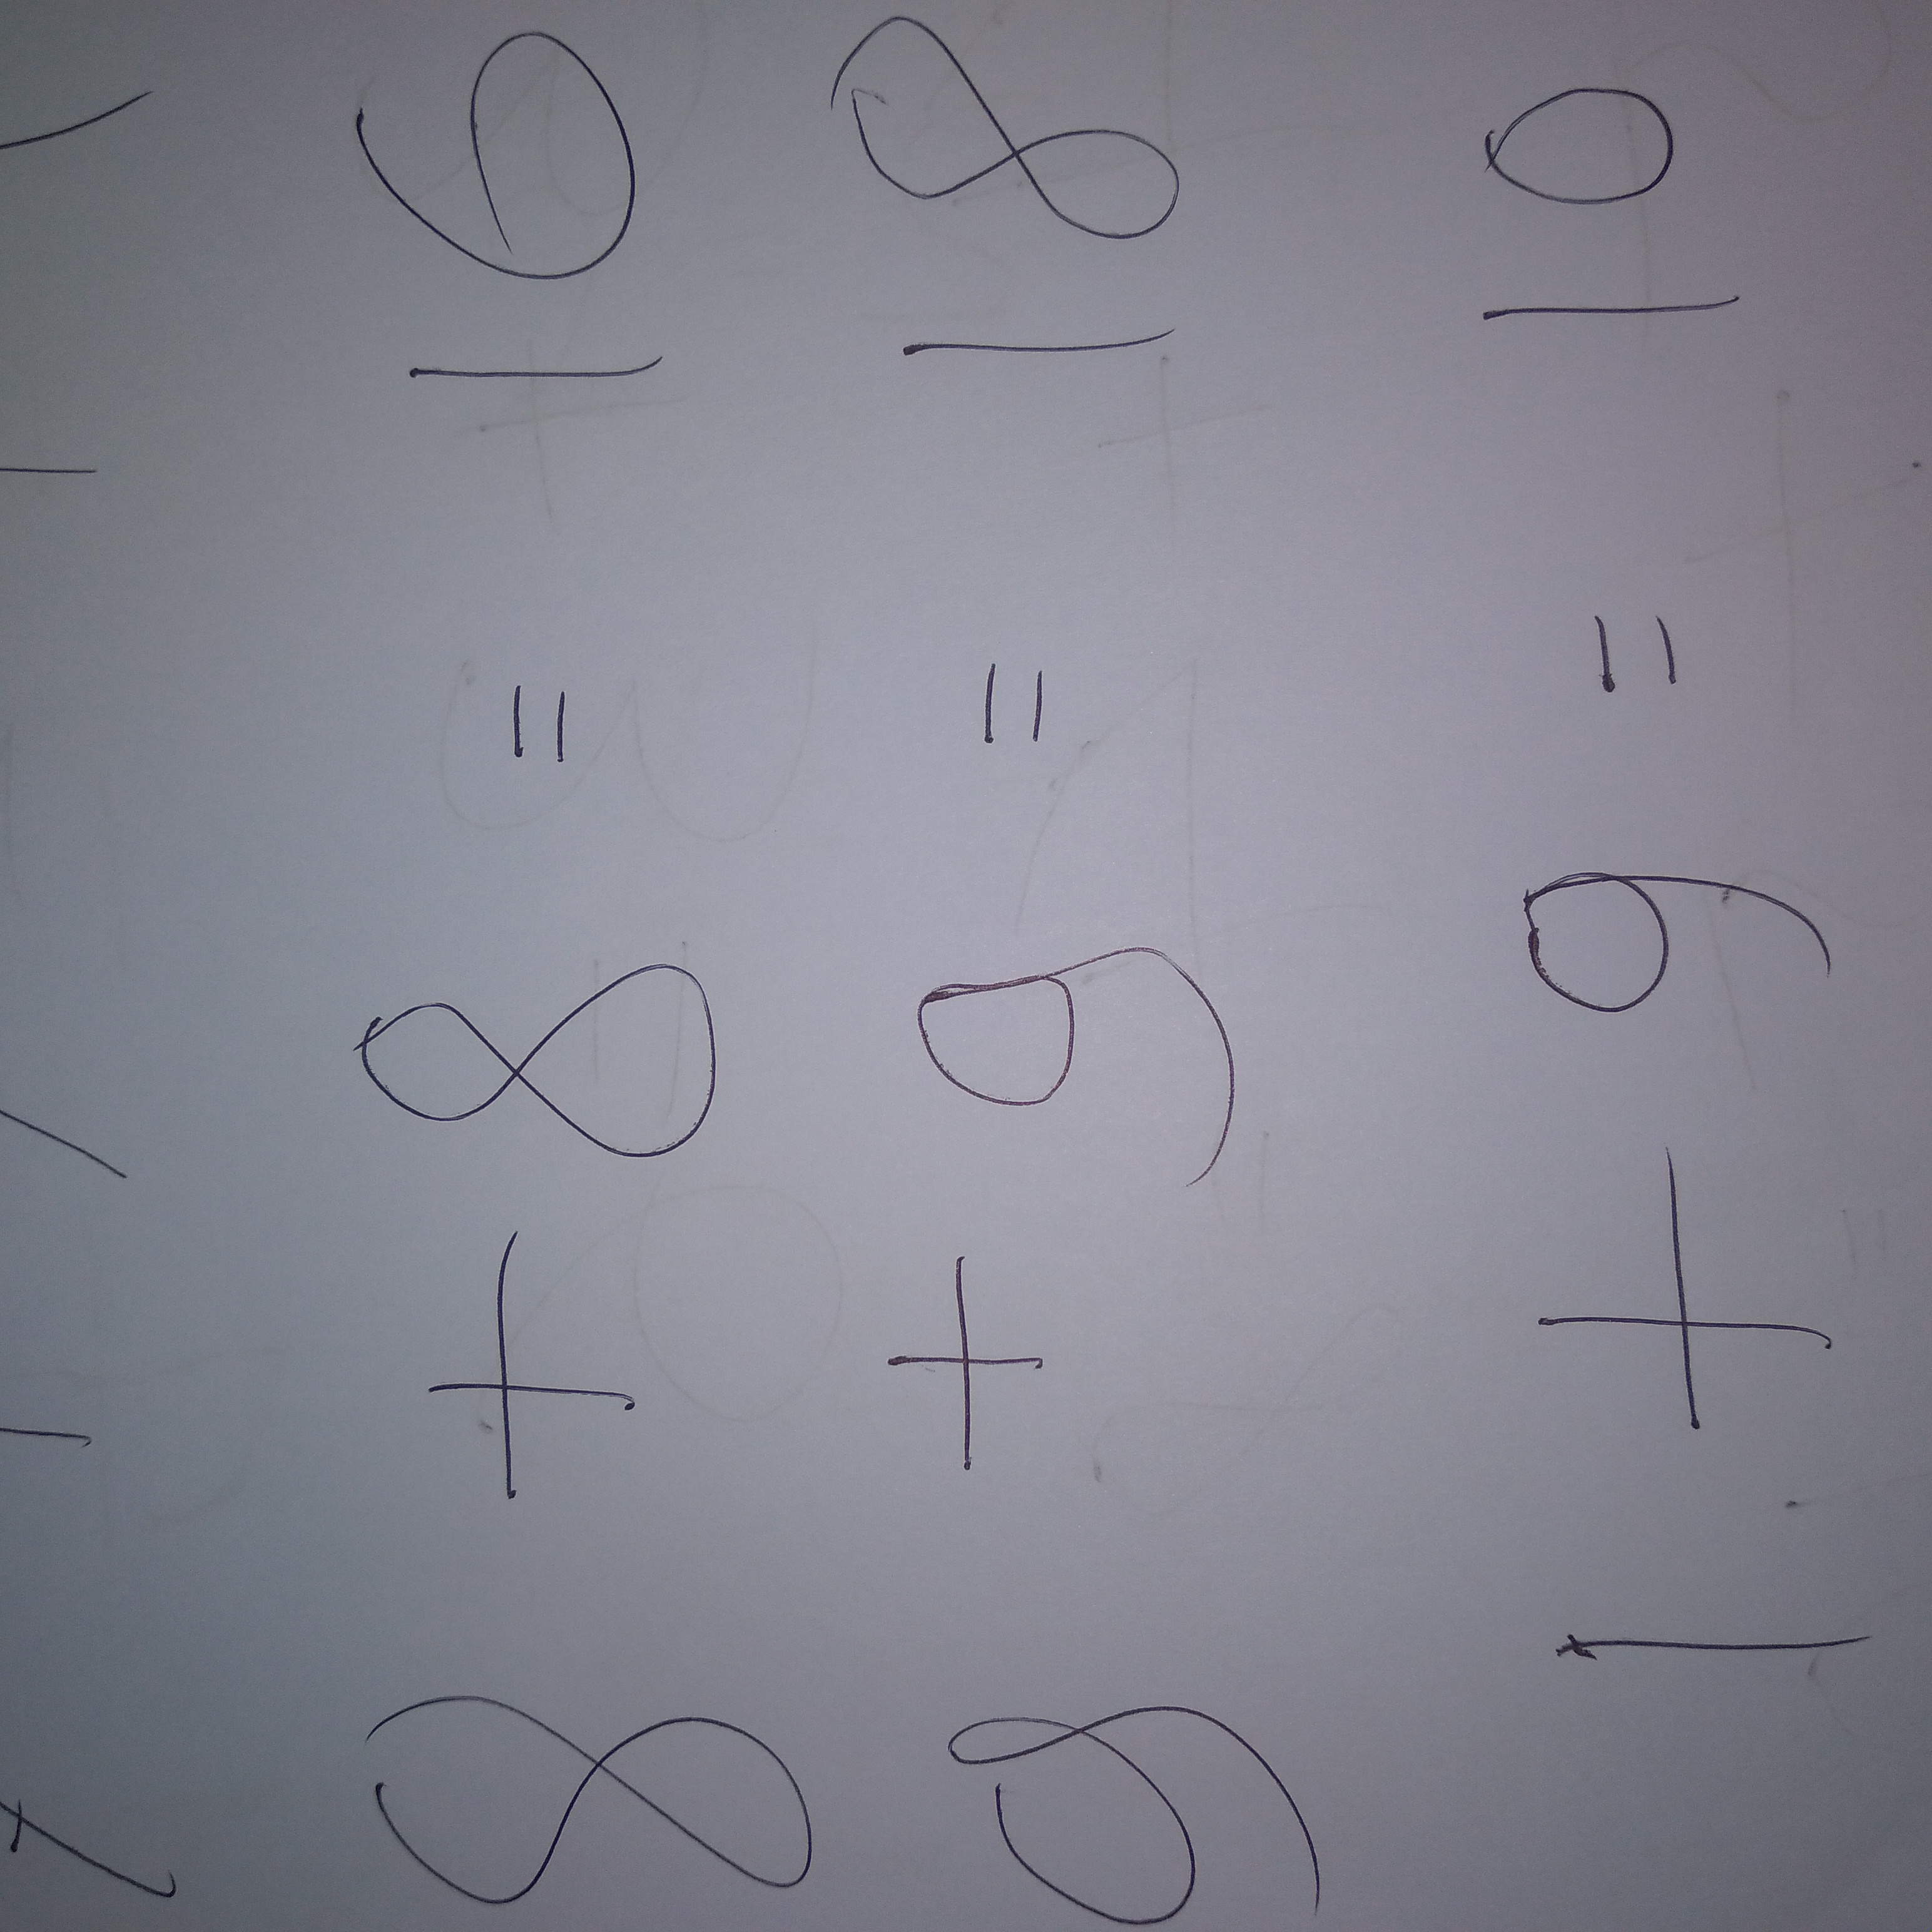 8 + 8 = 16
9 + 9 = 18
1 + 9 = 10